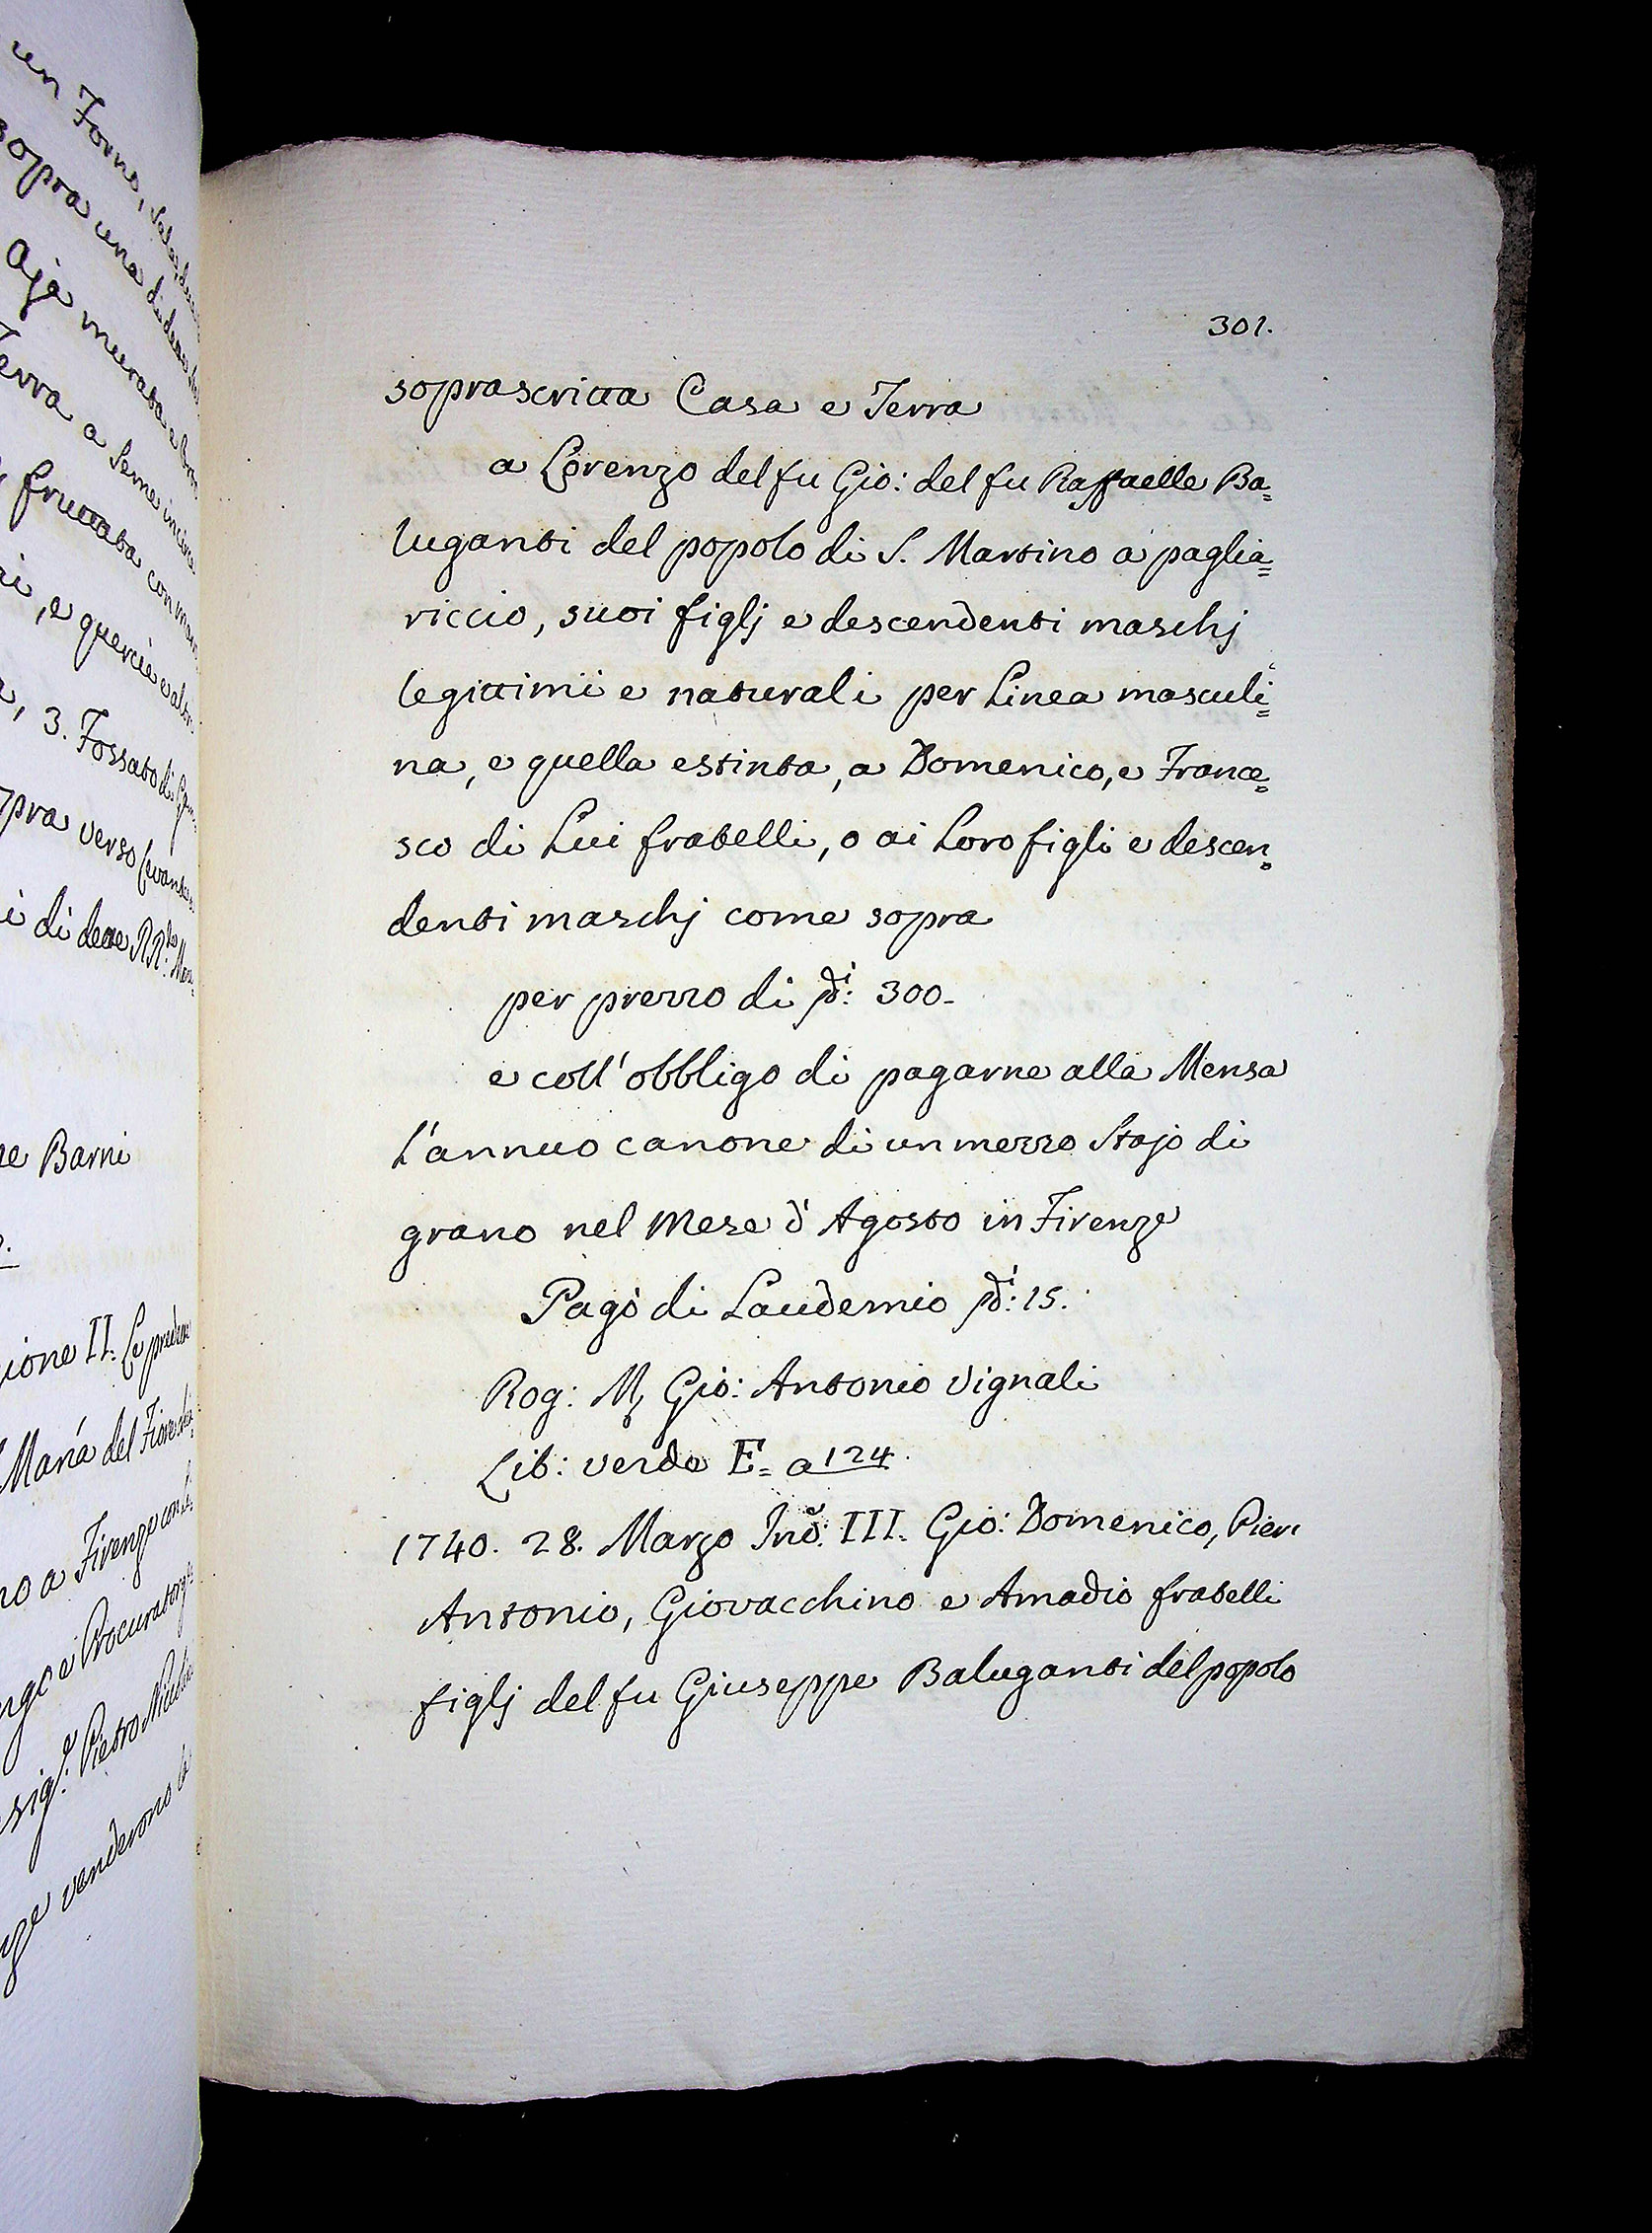 un Forno,
sopra una di dette
Aja murata e
Terra a seme incirc
fruttata con
ri, e quercie e altr
a, 3. Fossato di
opra verso Levante
i di dette RR.
ne Barni
ione II. Le predette
Maria del Fiore
no a Firenze con
e Procurator
sig.e Pietro
ze venderono la
301.
soprascritta Casa e Terra
a Lorenzo del fu Gio: del fu Raffaelle Ba=
luganti del popolo di S. Martino a paglia=
riccio, suoi figlj e descendenti maschj
legittimi e naturali per Linea masculi=
na, e quella estinta, a Domenico, e France=
sco di Lui fratelli, o ai Loro figli e descen=
denti maschj come sopra
per prezzo di ∇di: 300-
e coll'obbligo di pagarne alla Mensa
l'annuo canone di un mezzo Stajo di
grano nel Mese d'Agosto in Firenze
Pagò di Laudemio ∇di: 15.
Rog: M, Gio: Antonio Vignali
Lib: verde E= a 124.
1740. 28. Marzo Ind: III. Gio: Domenico, Pier
Antonio, Giovacchino e Amadio fratelli
figlj del fu Giuseppe Baluganti del popolo